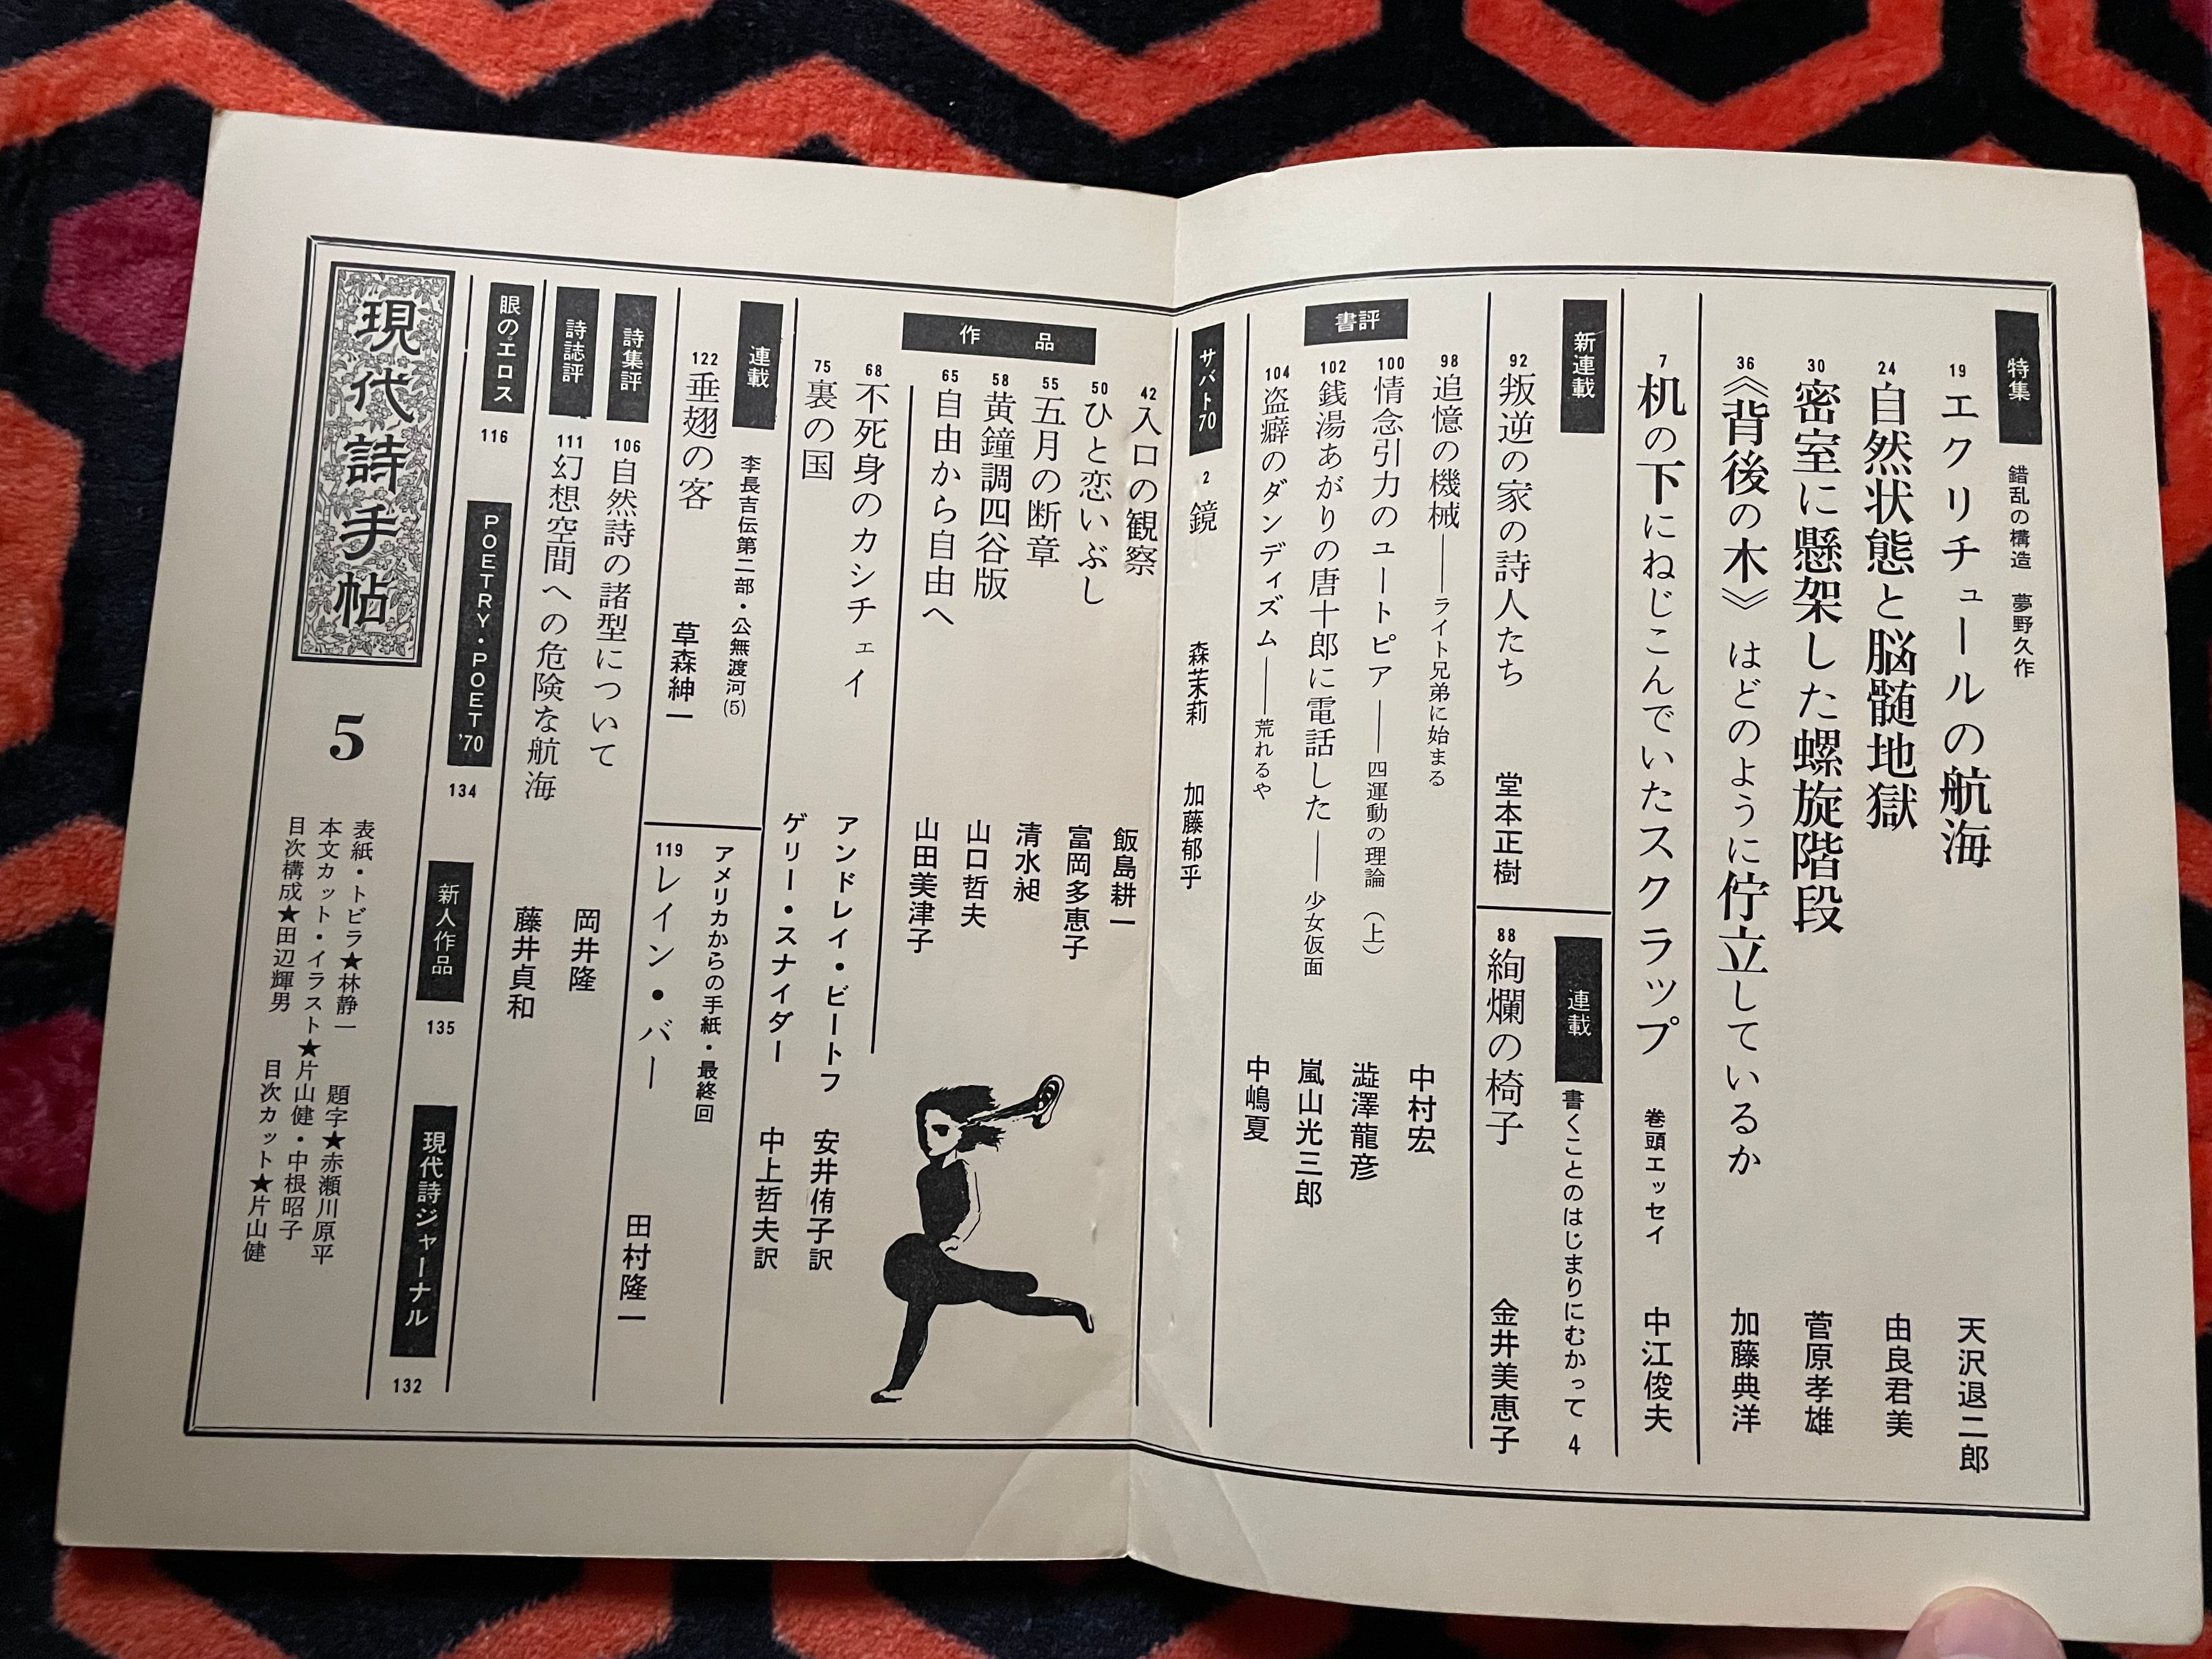 特集 錯乱の構造 夢野久作
19 エクリチュールの航海 天沢退二郎
24 自然状態と脳髄地獄 由良君美
30 密室に懸架した螺旋階段 菅原孝雄
36 《背後の木》はどのように佇立しているか 加藤典洋
7 机の下にねじこんでいたスクラップ 巻頭エッセイ 中江俊夫
新連載
92 叛逆の家の詩人たち 堂本正樹
連載 書くことのはじまりにむかって 4
88 絢爛の椅子 金井美恵子
書評
98 追憶の機械――ライト兄弟に始まる 中村宏
100 情念引力のユートピア――四運動の理論(上) 澁澤龍彦
102 銭湯あがりの唐十郎に電話した――少女仮面 嵐山光三郎
104 盗癖のダンディズム――荒れるや 中嶋夏
サバト70 2 鏡 森茉莉 加藤郁乎
作品
42 入口の観察 飯島耕一
50 ひと恋いぶし 富岡多恵子
55 五月の断章 清水昶
58 黄鐘調四谷版 山口哲夫
65 自由から自由へ 山田美津子
68 不死身のカシチェイ アンドレイ・ビートフ 安井侑子訳
75 裏の国 ゲリー・スナイダー 中上哲夫訳
連載 李長吉伝第二部・公無渡河(5)
122 垂翅の客 草森紳一
アメリカからの手紙・最終回
119 レイン・バー 田村隆一
詩集評 106 自然詩の諸型について 岡井隆
詩誌評 111 幻想空間への危険な航海 藤井貞和
眼のエロス 116
POETRY・POET'70 134
新人作品 135
現代詩ジャーナル 132
現代詩手帖 5
表紙・トビラ★林静一 題字★赤瀬川原平
本文カット・イラスト★片山健・中根昭子
目次構成★田辺輝男 目次カット★片山健